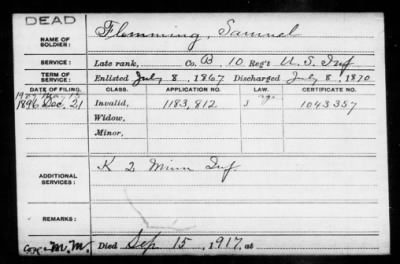 DEAD
NAME OF SOLDIER: Flemming, Samuel
SERVICE: Late rank, Co. B, 10 Reg't U. S. Inf
TERM OF SERVICE: Enlisted July 8, 1867 Discharged July 8, 1870
DATE OF FILING. CLASS. APPLICATION NO. LAW. CERTIFICATE NO.
1896 Dec. 21 Invalid, 1183,812 1043357
Widow,
Minor,
ADDITIONAL SERVICES: K 2 Minn Inf.
REMARKS:
M.M. Died Sep 15, 1917, at